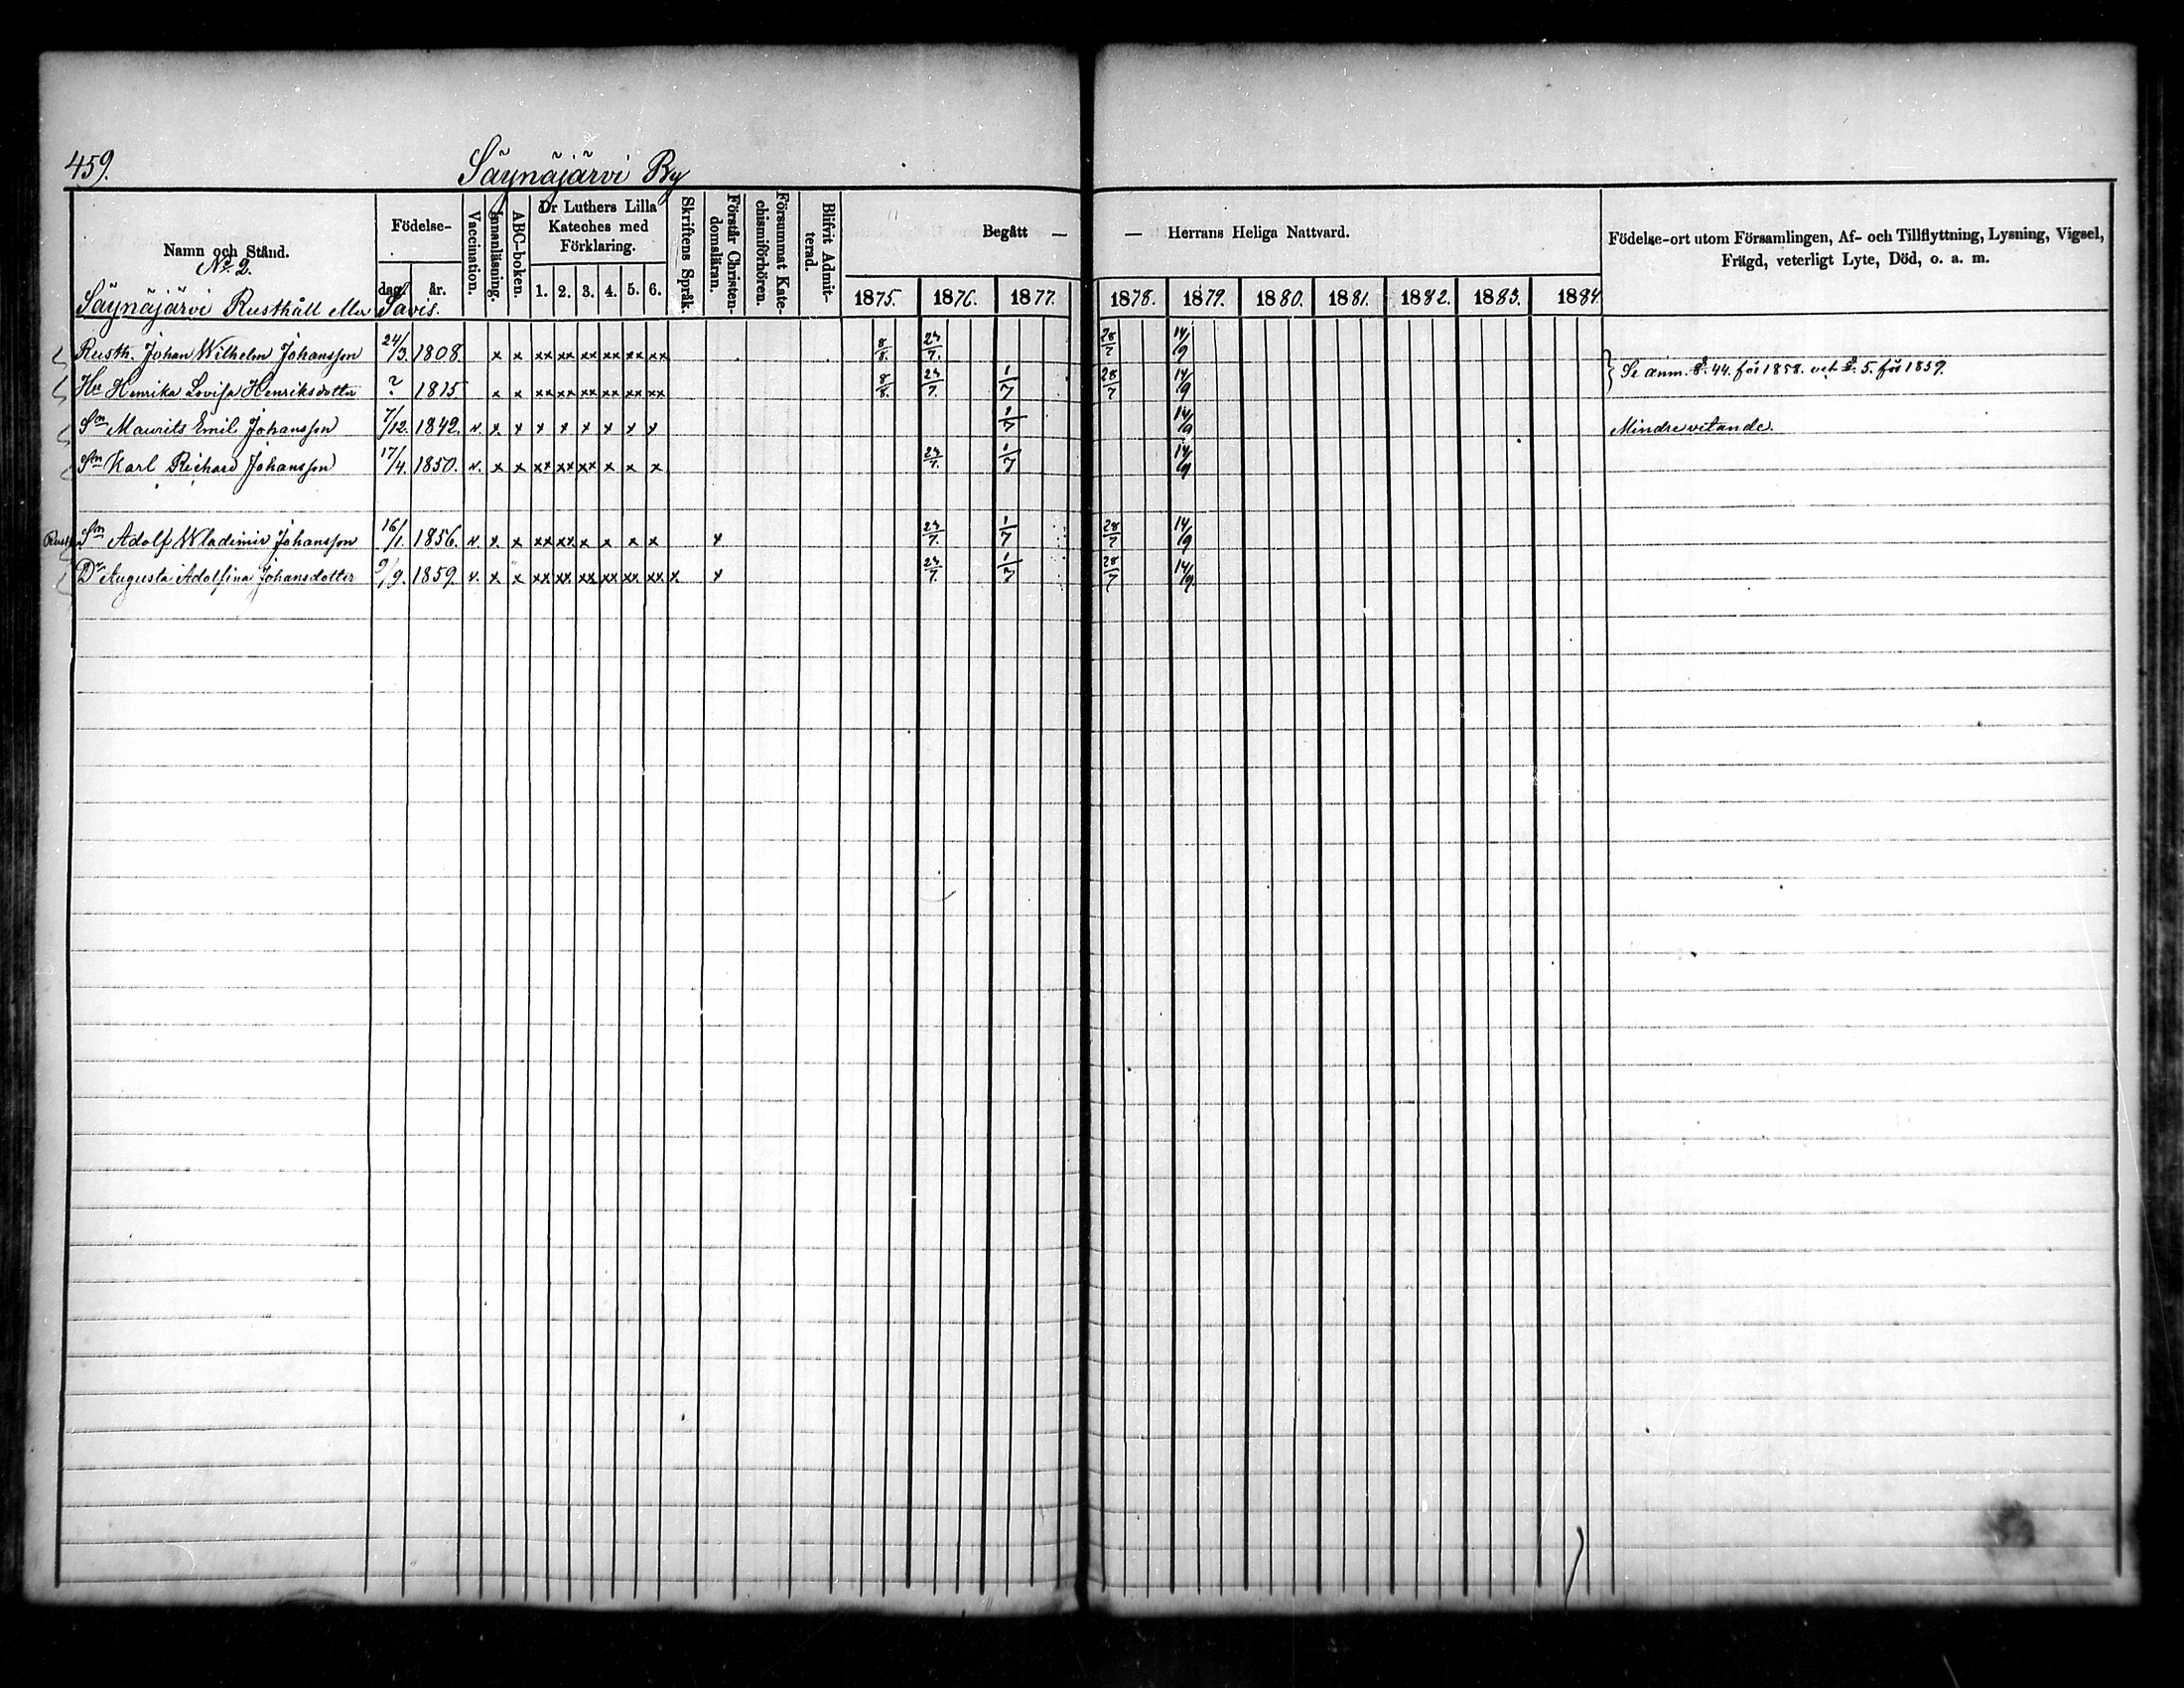 459.
Säynäjärvi By
Namn och Stånd.
Födelse-
dag. år.
Vaccination.
Innanläsning.
ABC-boken.
Dr Luthers Lilla
Kateches med
Förklaring.
1. 2. 3. 4. 5. 6.
Skriftens Språk.
Förstår Christen-
domsläran.
Försummat Kate-
chismiförhören.
Blifvit Admit-
terad.
Begått — — Herrans Heliga Nattvard.
1875. 1876. 1877. 1878. 1879. 1880. 1881. 1882. 1883. 1884.
Födelse-ort utom Församlingen, Af- och Tillflyttning, Lysning, Vigsel,
Frägd, veterligt Lyte, Död, o. a. m.
No 2.
Säynäjärvi Rusthåll eller Savis.
Rusth. Johan Wilhelm Johansson 24/3. 1808. x x xx xx xx xx xx xx 8/8. 23/7. 28/7 14/9
Hu Henrika Lovisa Henriksdotter ? 1815 x x xx xx xx xx xx xx 8/8. 23/7. 1/7 28/7 14/9 } Se anm. §. 44. för 1858. och §. 5. för 1859.
Sn Maurits Emil Johansson 7/12. 1842. v. x x x x x x x x 1/7 14/9 Mindre vetande.
Sn Karl Richard Johansson 17/4. 1850. v. x x xx xx xx x x x 23/7. 1/7 14/9
Sn Adolf Wladimir Johansson 16/1. 1856. v. x x xx xx x x x x x 23/7. 1/7 28/7 14/9
Dr Augusta Adolfina Johansdotter 9/9. 1859. v. x x xx xx xx xx xx xx x x 23/7. 1/7 28/7 14/9.